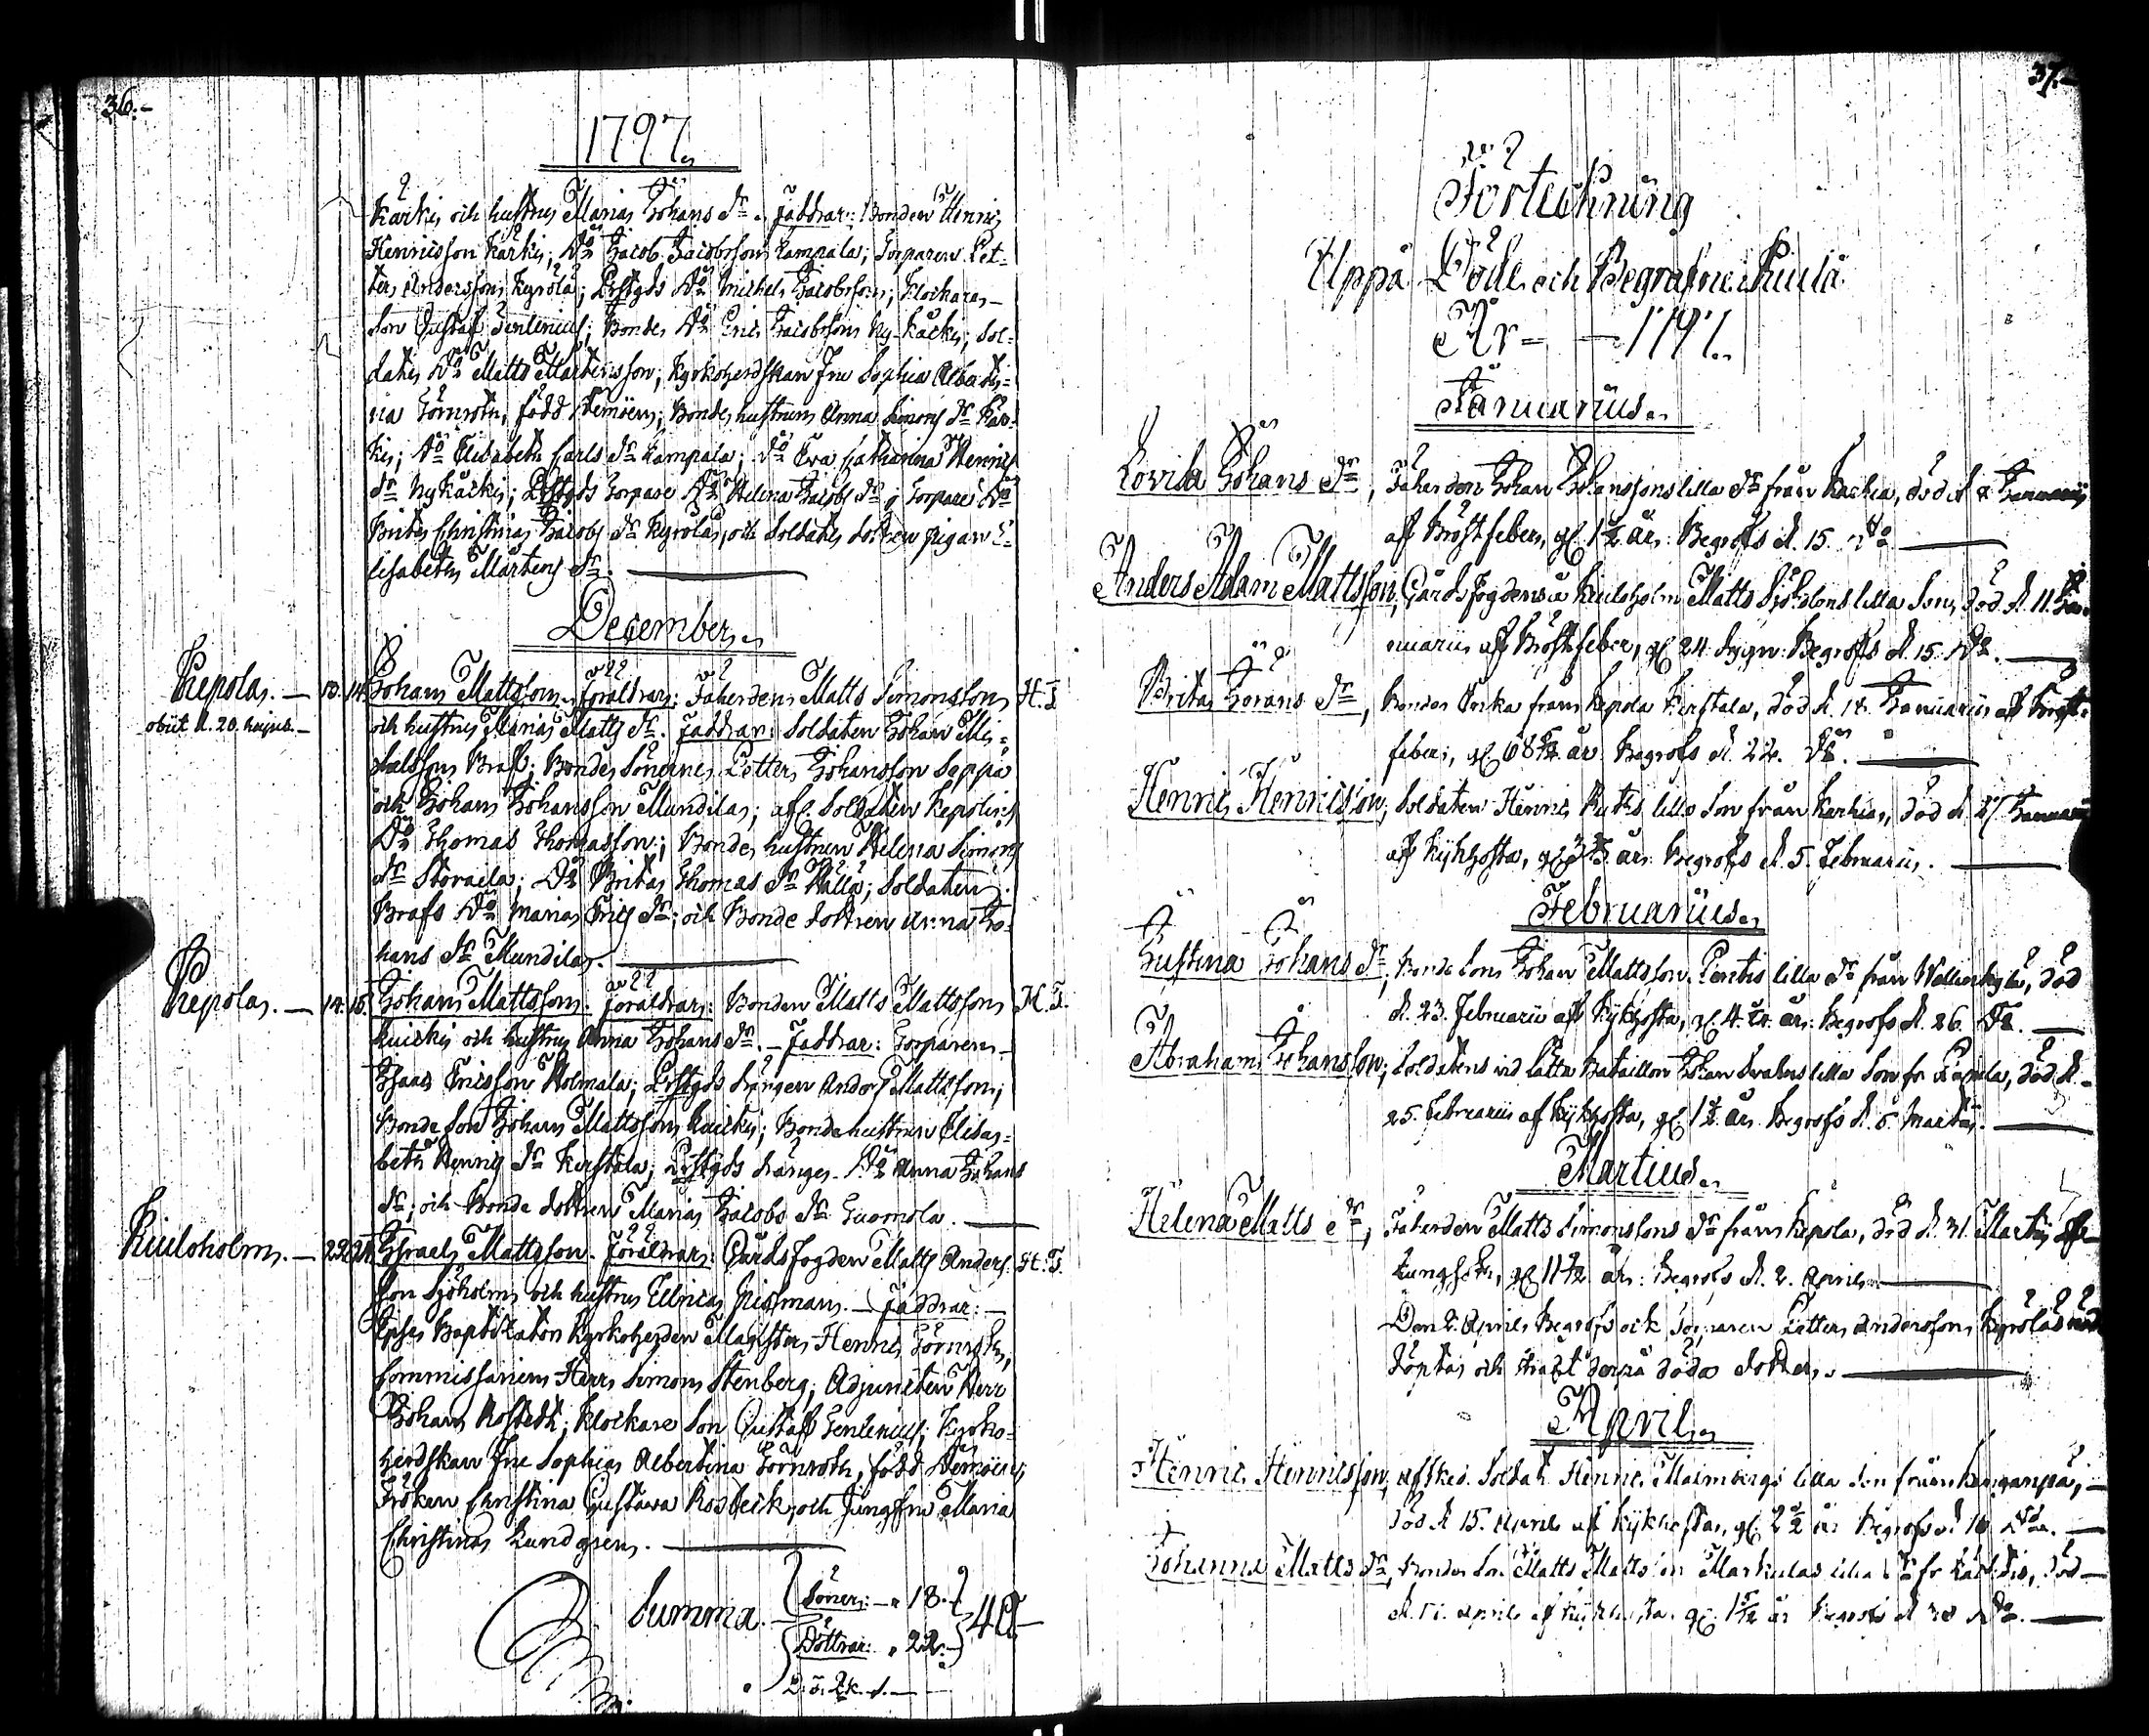 36.-
1797.
Kärki och hustrus Maria Johans Dr. Faddrar: Bonden Henric
Henricsson Kärki; Do Jacob Jacobsson Kampala; Torparen Pet-
ter Andersson Kyrölä; Do Michel Jacobsson; Klockare-
son Gustaf Genlenius; Bonde Do Eric Jacobsson Ny-Käcki; Sol-
date Do Matts Mårtensson; Kyrkoherdskan Fru Sophia Alberti-
na Törnroth, född Nemoen; Bonde hustrun Anna Simons Dr Kär-
ki; Do Elisabeth Carls Dr Kampala; Do Eva Catharina Henrics
Dr Ny Käcki; Torpare Do Helena Jacobs Dr; Torpare Do
Brita Christina Jacobs Dr Kyrölä, och Soldate dottren pigan E-
lisabeth Mårtens Dr.
December.
Kepola. - 13. 14. Johan Mattsson. Föräldrar: Faherden Matts Simonsson H. T.
obiit d. 20. hujus.-
och hustru Maria Matts Dr. Faddrar: Soldaten Johan Mi-
chelsson Braf; Bonde Sönerne Petter Johansson Seppä
och Johan Johansson Mundila; afl. Soldaten Kepolins
Do Thomas Thomasson; Bonde hustrun Helena Simons
Dr Storaila; Do Brita Thomas Dr Källa; Soldaten
Brafs Do Maria Erics Dr; och Bonde dottren Anna Jo-
hans Dr Mundila.
Kepola. - 14. 15. Johan Mattsson. Föräldrar: Bonden Matts Mattsson H. T.
Kuicki och hustru Anna Johans Dr. - Faddrar: Torparen
Isaac Ericsson Holmala; drängen Anders Mattsson;
Bonde Son Johan Mattsson Kuicki; Bonde hustrun Elisa-
beth Henrics Dr Kerstala; dränge Do Anna Johans
Dr; och Bonde dottren Maria Jacobs Dr Tuomola.
Kuiloholm. - 22. 24. Israel Mattsson. Föräldrar: Gårds fogden Matts Anders- H. T.
son Sjöholm och hustru Ellrica Grisman. - Faddrar: -
Kyrkoherden Magister Henric Törnroth,
Commissarien Herr Simon Stenberg; Adjuncten Herr
Johan Rostedt; Klockare Son Gustaf Genlenius; Kyrko-
herdskan Fru Sophia Albertina Törnroth, född Nemoen;
Fröken Christina Gustava Rosbeck, och Jungfru Maria
Christina Lundgren.
Summa. Söner: - 18. 40-
Döttrar: 22.
37.-
Förteckning
Uppå Döde och Begrafne i Kiula
År - 1797.
Januarius.
Lovisa Johans Dr, Faherden Johan Johanssons lilla Dr från Karhia, död d. Januarii
af Bröstfeber, gl. 1 1/2 år. Begrofs d. 15. Do
Anders Adam Mattsson, Gårds fogdens å Kuiloholm Matts Sjöholms lilla Son, död d. 11. Ja-
nuarii af Bröstfeber, gl. 24. dygn. Begrofs d. 15. Do.
Brita Görans Dr, Bonde Enka från Kepola Kerstala, död d. 18. Januarii af Bröst-
feber, gl. 68 1/2 år. Begrofs d. 22. Do.
Henric Henricsson, Soldaten Henric Ruths lilla Son från Karhia, död d. 27 Januarii
af Kikhosta, gl. år. Begrofs d. 5. Februarii.
Februarius.
Justina Johans Dr, Bonde Sons Johan Mattsson Penttis lilla Dr från Wallenkylä, död
d. 23. Februarii af Kikhosta, gl. 4. år. Begrofs d. 26. Do.
Abraham Johansson, Soldatens vid Lätta Bataillon Johan lilla Son fr. död d.
25. Februarii af Kikhosta, gl. 1 1/2 år. Begrofs d. 5. Martii.
Martius.
Helena Matts Dr, Faherden Matts Simonssons Dr från Kepola, död d. 31. Martii af
Lungsot, gl. 11 1/2 år. Begrofs d. 2. April.
Den 2. April Begrofs ock Torparen Petter Anderssons Kyrölä nöd
döpta och strax derpå döda dotter.
April.
Henric Henricsson, afsked. Soldat. Henric Malmbergs lilla Son från Kanganpä,
död d. 15. April af Kikhosta, gl. 2 1/2 år Begrofs d. 16 Do.
Johanna Matts Dr, Bonde Son Matts Mattsson Markulas lilla Dr fr. död
d. April af Kikhosta gl. 1 1/2 år Begrofs d. 30 Do.